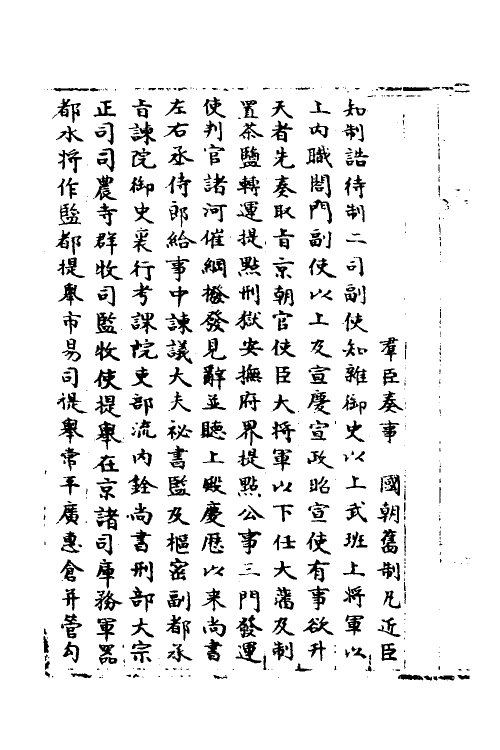 羣臣奏事　國朝舊制凡近臣
知制誥待制二司副使知雜御史以上武班上將軍以
上內職閤門副使以上及宣慶宣政昭宣使有事欲升
天者先奏取旨京朝官使臣大將軍以下任大藩及制
置茶鹽轉運提點刑獄安撫府界提點公事三門發運
使判官諸河催綱撥發見辭並聽上殿慶歷以來尚書
左右丞侍郎給事中諫議大夫祕書監及樞密副都承
旨諫院御史裏行考課院吏部流內銓尚書刑部大宗
正司司農寺群牧司監牧使提舉在京諸司庫務軍器
都水將作監都提舉市易司提舉常平廣惠倉并管勾